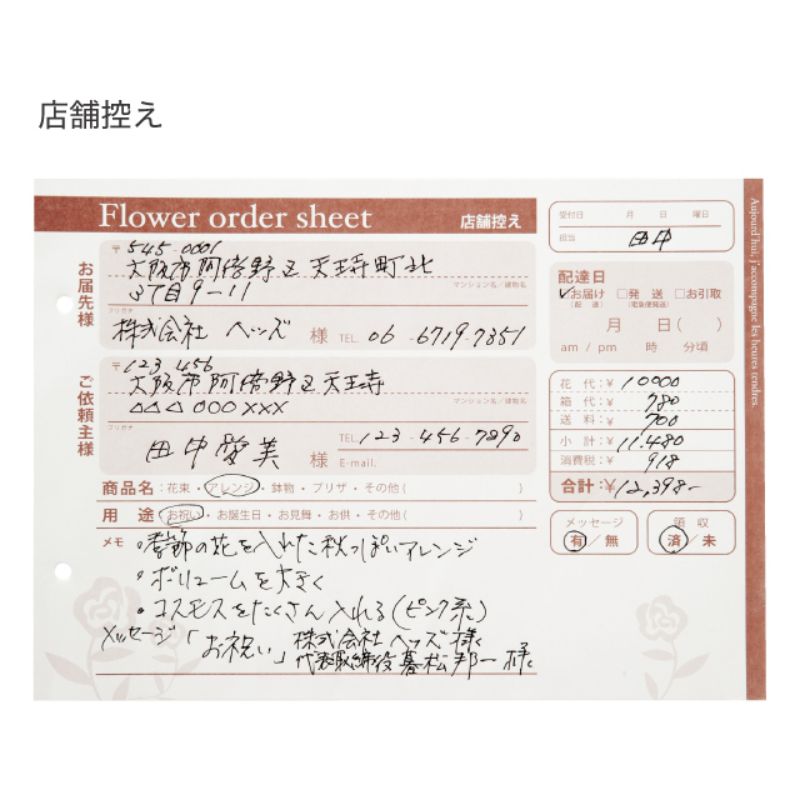 店舗控え
Flower order sheet 店舗控え
お届先様
〒545-0001
大阪市阿倍野区天王寺町北
3丁目9-11
マンション名/建物名
フリガナ
株式会社 ヘッズ 様 TEL. 06-6719-7351
ご依頼主様
〒123-456
大阪市阿倍野区天王寺
△△△○○○×××
マンション名/建物名
フリガナ
田中愛美 様
TEL. 123-456-7890
E-mail.
商品名:花束・アレンジ・鉢物・プリザ・その他( )
用 途 お祝い・お誕生日・お見舞・お供・その他( )
メモ
・季節の花を入れた秋っぽいアレンジ
・ボリュームを大きく
・コスモスをたくさん入れる(ピンク系)
メッセージ「お祝い」株式会社ヘッズ様
代表取締役 暮松邦一様
受付日 月 日 曜日
担当 田中
配達日
✓お届け □発 送 □お引取
(配 達) (宅急便発送)
月 日( )
am / pm 時 分頃
花 代:¥ 10000
箱 代:¥ 780
送 料:¥ 700
小 計:¥ 11.480
消費税:¥ 918
合計:¥12,398-
メッセージ
有/無
領 収
済/未
Aujourd'hui, j'accompagne les heures tendres.